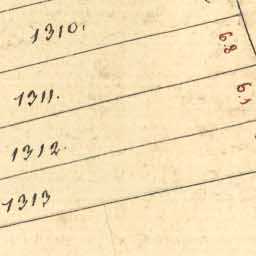 1310.
6.8
1311.
6.1
1312.
1313